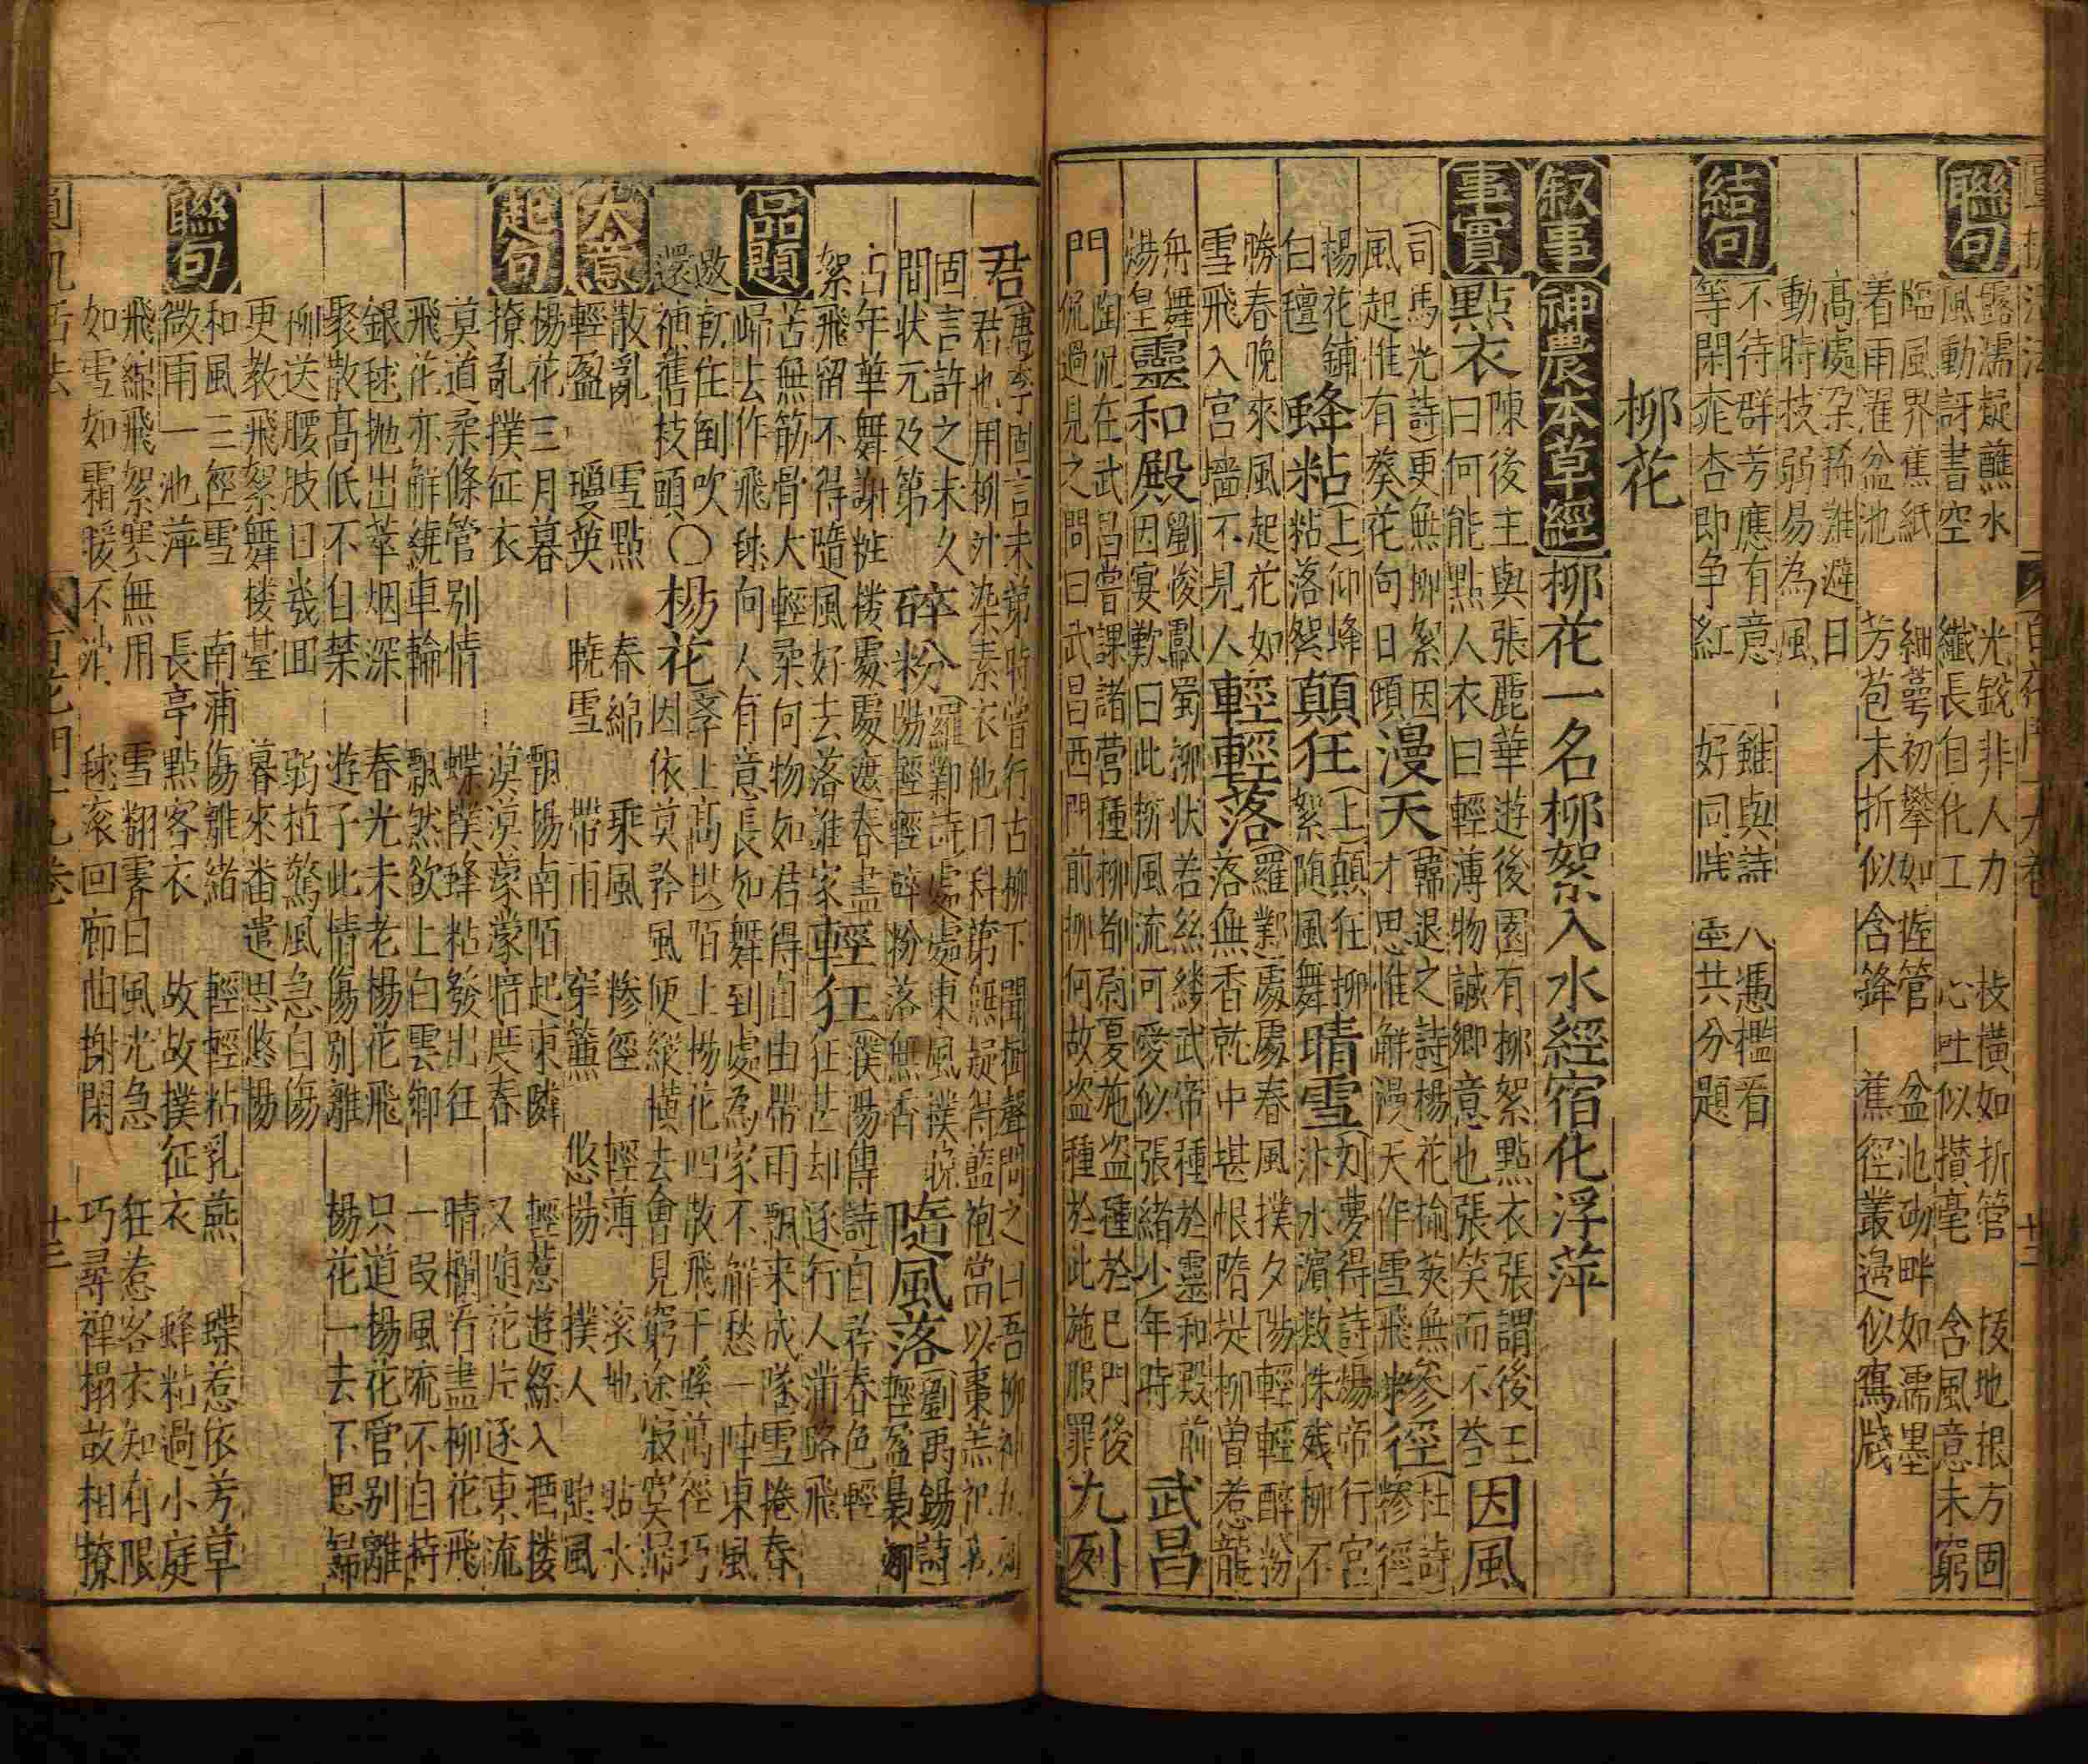 聯句
露濡疑蘸水 光銳非人力 枝橫如折管 披地根方固
風動訝書空 纖長自化工 心吐似攢毫 含風意未窮
臨風界蕉紙 細蕚初攀如 管 盆池砌畔如濡墨
着雨濯盆池 芳苞未折似含鋒 蕉徑叢邊似寫牋
高處朶稀難避日
動時技弱易為風
結句
不待群芳應有意 雖與詩人憑檻看
等閑 杏即争紅 好同 共分題
柳花
叙事 神農本草經 柳花一名柳絮入水經宿化浮萍
事實 點衣
陳後主與張麗華遊後園有柳絮點衣張謂後王
曰何能點人衣曰輕薄物誠卿意也張笑而不荅
因風
司馬光詩更無柳絮因
風起惟有葵花向日傾
漫天
韓退之詩楊花榆莢無
才思惟解漫天作雪飛
糝徑
杜詩糝徑
楊花鋪
白氊
蜂粘
上仰蜂
粘落絮
顛狂
上顛狂柳
絮随風舞
晴雪
劉夢得詩煬帝行宫
汴水濱数株殘柳不
勝春晚來風起花如
雪飛入宫墻不見人
輕輕落
羅鄴處處春風撲夕陽輕輕醉粉
落無香就中堪恨隋堤柳曽惹龍
舟舞
煬皇
靈和殿
劉悛獻蜀柳状若絲縷武帝種於靈和殿前
因宴歎曰此柳風流可愛似張緒少年時
武昌
門
陶侃在武昌嘗課諸營種柳都尉夏施盗種於已門後
侃過見之問曰武昌西門前柳何故盗種於此施服罪
九列
君
唐李固言未第時曾行古柳下聞樹聲問之曰吾柳神九烈
君也用柳汁染素衣他日科第無疑得藍袍當以棗羔祀我
固言許之未久
間状元及第
碎粉
羅鄴詩處處東風撲晚
陽輕輕碎粉落無香
隨風落
劉禹錫詩
輕盈裊娜
占年華舞謝粧楼處處遮春盡
絮飛留不得隨風好去落誰家
輕狂
濮陽傳詩自矜春色輕
狂甚却逐行人滿路飛
品題
苦無筋骨大輕柔何物如君得自由帶雨飄来成隊雪捲春
歸去作飛毬向人有意長如舞到處為家不解愁一陣東風
邀 住倒吹
還 舊枝頭
〇楊花
上髙 陌上楊花四散飛千蹊萬徑巧
因依莫矜風便縱橫去會見窮途寂寞歸
大意
散亂 雪點 春綿 乘風 糝徑 輕薄 滚地 貼水
輕盈 瓊英 曉雪 帶雨 穿簾 悠揚 撲人 風
起句
楊花三月暮 飄揚南陌起東隣 輕惹遊絲入酒楼
撩亂撲征衣 漠漠蒙蒙暗度春 又隨花片逐東流
莫道柔條管别情 蝶撲蜂粘發出狂 晴欄看盡柳花飛
飛花亦觧繞車輪 飄然欲上白雲鄉 一叚風流不自持
銀毬抛出萃烟深 春光未老楊花飛 只道楊花管别離
聚散髙低不自禁 遊子此情傷别離 楊花一去不思歸
柳送腰肢日幾囬 弱植驚風急自傷
更教飛絮舞楼臺 暮來畨遣思悠揚
聯句
和風三徑雪 南浦傷離緒 輕輕粘乳燕 蝶惹依芳草
微雨一池萍 長亭點客衣 故故撲征衣 蜂粘過小庭
飛綿飛絮寒無用 雪翻霽白風光急 狂惹客衣知有限
如雪如霜暖不消 毬滚回廊曲榭閑 巧尋禅榻故相撩